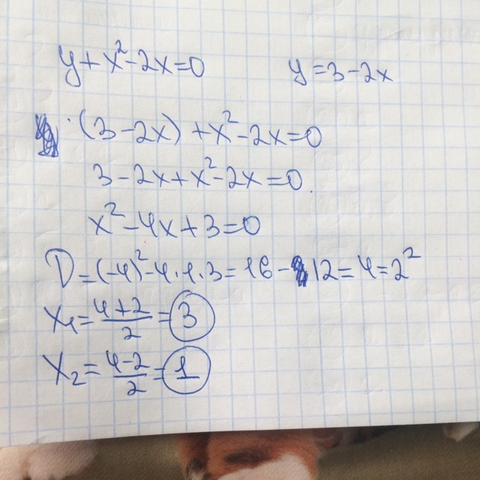 y+x²-2x=0 y=3-2x
(3-2x)+x²-2x=0
3-2x+x²-2x=0.
x²-4x+3=0
D=(-4)²-4·1·3=16-12=4=2²
x₁=4+2/2=3
x₂=4-2/2=1